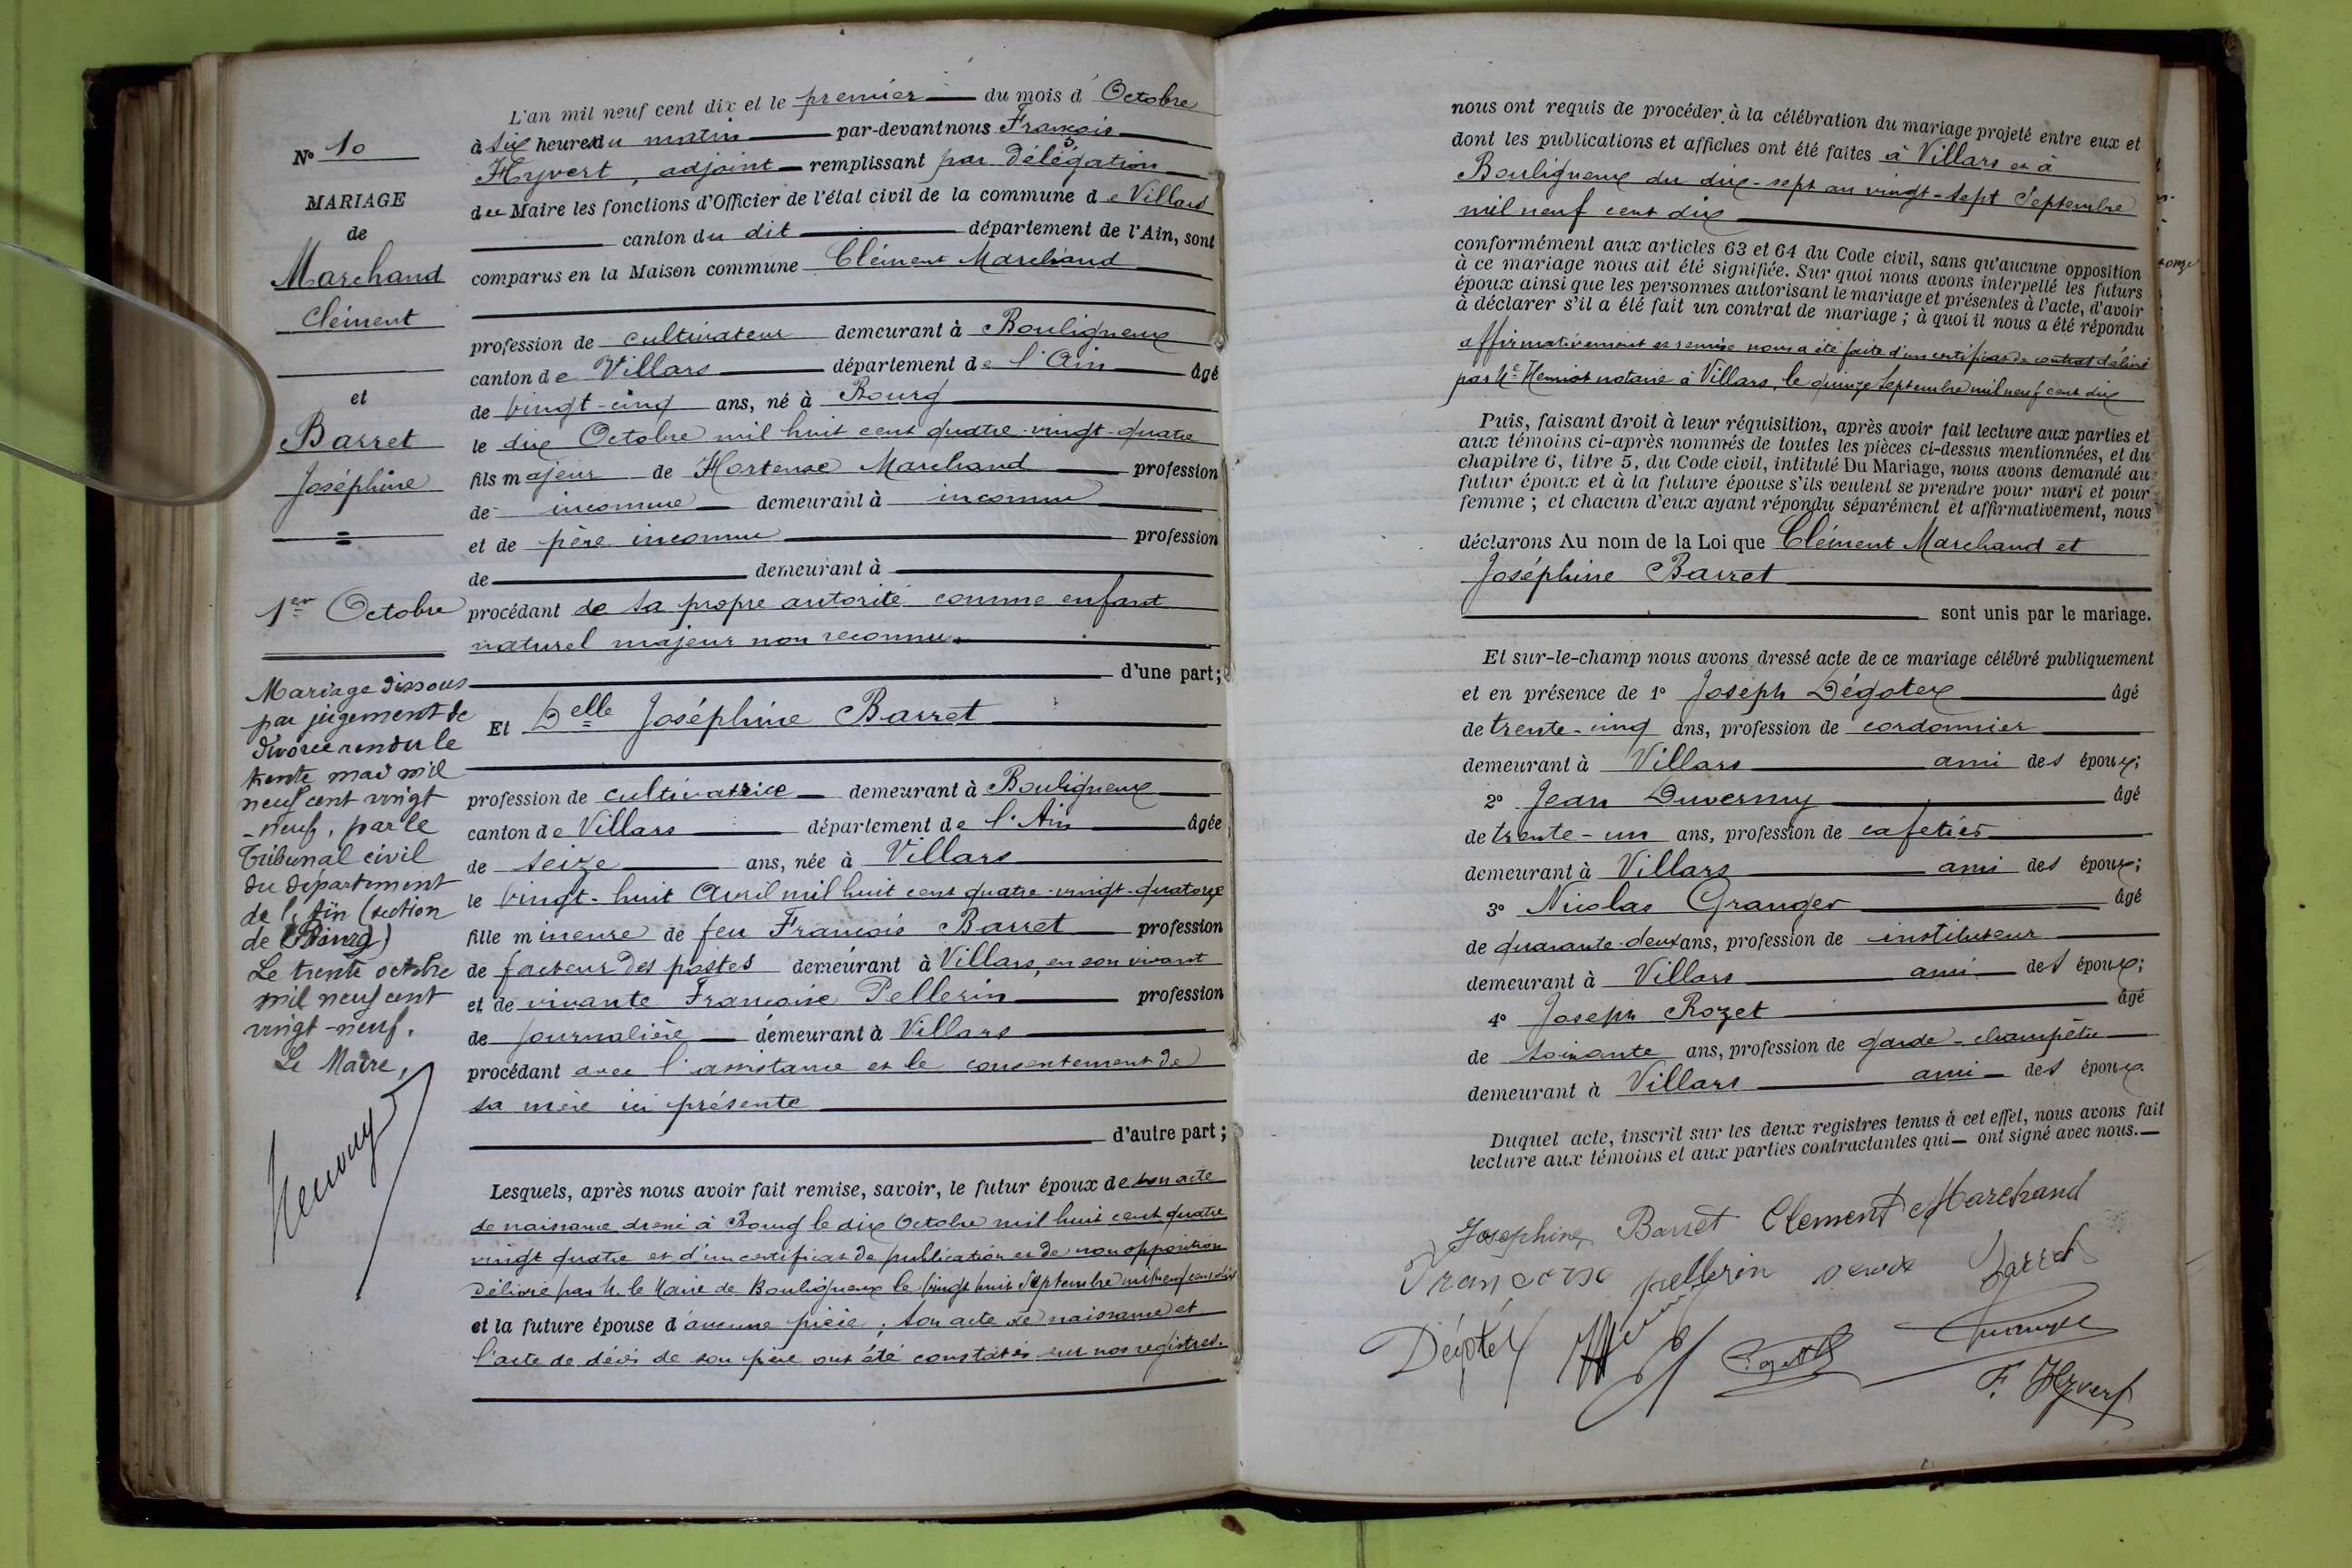 N° 10
MARIAGE
de
Marchand
Clément
et
Barret
Joséphine
1er Octobre
Mariage dissous
par jugement de
divorce rendu le
trente mai mil
neuf cent vingt
-neuf, par le
Tribunal civil
du département
de l'Ain (section
de Bourg)
Le trente octobre
mil neuf cent
vingt-neuf.
Le Maire,
L'an mil neuf cent dix et le premier du mois d' Octobre
à six heures du matin par-devant nous François
Hyvert, adjoint remplissant par délégation
du Maire les fonctions d'Officier de l'état civil de la commune de Villars
canton du dit département de l'Ain, sont
comparus en la Maison commune Clément Marchand
profession de cultivateur demeurant à Bouligneux
canton de Villars département de l'Ain âgé
de vingt-cinq ans, né à Bourg
le dix Octobre mil huit cent quatre-vingt-quatre
fils majeur de Hortense Marchand profession
de inconnue demeurant à inconnu
et de père inconnu profession
de demeurant à
procédant de sa propre autorité comme enfant
naturel majeur non reconnu.
d'une part;
Et Delle Joséphine Barret
profession de cultivatrice demeurant à Bouligneux
canton de Villars département de l'Ain âgée
de seize ans, née à Villars
le vingt-huit Avril mil huit cent quatre-vingt-quatorze
fille mineure de feu François Barret profession
de facteur des postes demeurant à Villars, en son vivant
et de vivante Françoise Pellerin profession
de journalière demeurant à Villars
procédant avec l'assistance et le consentement de
sa mère ici présente
d'autre part;
Lesquels, après nous avoir fait remise, savoir, le futur époux de son acte
de naissance dressé à Bourg le dix Octobre mil huit cent quatre
vingt quatre et d'un certificat de publication et de non opposition
délivré par M. le Maire de Bouligneux le vingt huit Septembre mil neuf cent dix
et la future épouse d'aucune pièce; son acte de naissance et
l'acte de décès de son père ont été constatés sur nos registres.
nous ont requis de procéder à la célébration du mariage projeté entre eux et
dont les publications et affiches ont été faites à Villars et à
Bouligneux du dix-sept au vingt-sept Septembre
mil neuf cent dix
conformément aux articles 63 et 64 du Code civil, sans qu'aucune opposition
à ce mariage nous ait été signifiée. Sur quoi nous avons interpellé les futurs
époux ainsi que les personnes autorisant le mariage et présentes à l'acte, d'avoir
à déclarer s'il a été fait un contrat de mariage; à quoi il nous a été répondu
affirmativement et remise nous a été faite d'un certificat de contrat délivré
par Me Henriot notaire à Villars, le quinze Septembre mil neuf cent dix
Puis, faisant droit à leur réquisition, après avoir fait lecture aux parties et
aux témoins ci-après nommés de toutes les pièces ci-dessus mentionnées, et du
chapitre 6, titre 5, du Code civil, intitulé Du Mariage, nous avons demandé au
futur époux et à la future épouse s'ils veulent se prendre pour mari et pour
femme; et chacun d'eux ayant répondu séparément et affirmativement, nous
déclarons Au nom de la Loi que Clément Marchand et
Joséphine Barret
sont unis par le mariage.
Et sur-le-champ nous avons dressé acte de ce mariage célébré publiquement
et en présence de 1° Joseph Dégotex âgé
de trente-cinq ans, profession de cordonnier
demeurant à Villars ami des époux;
2° Jean Duvernay âgé
de trente-un ans, profession de cafetier
demeurant à Villars ami des époux;
3° Nicolas Granger âgé
de quarante-deux ans, profession de instituteur
demeurant à Villars ami des époux;
4° Joseph Rozet âgé
de soixante ans, profession de garde-champêtre
demeurant à Villars ami des époux
Duquel acte, inscrit sur les deux registres tenus à cet effet, nous avons fait
lecture aux témoins et aux parties contractantes qui ont signé avec nous.
Josephine Barret Clement Marchand
Françoise pellerin veuve Barret
Dégotex
F. Hyvert